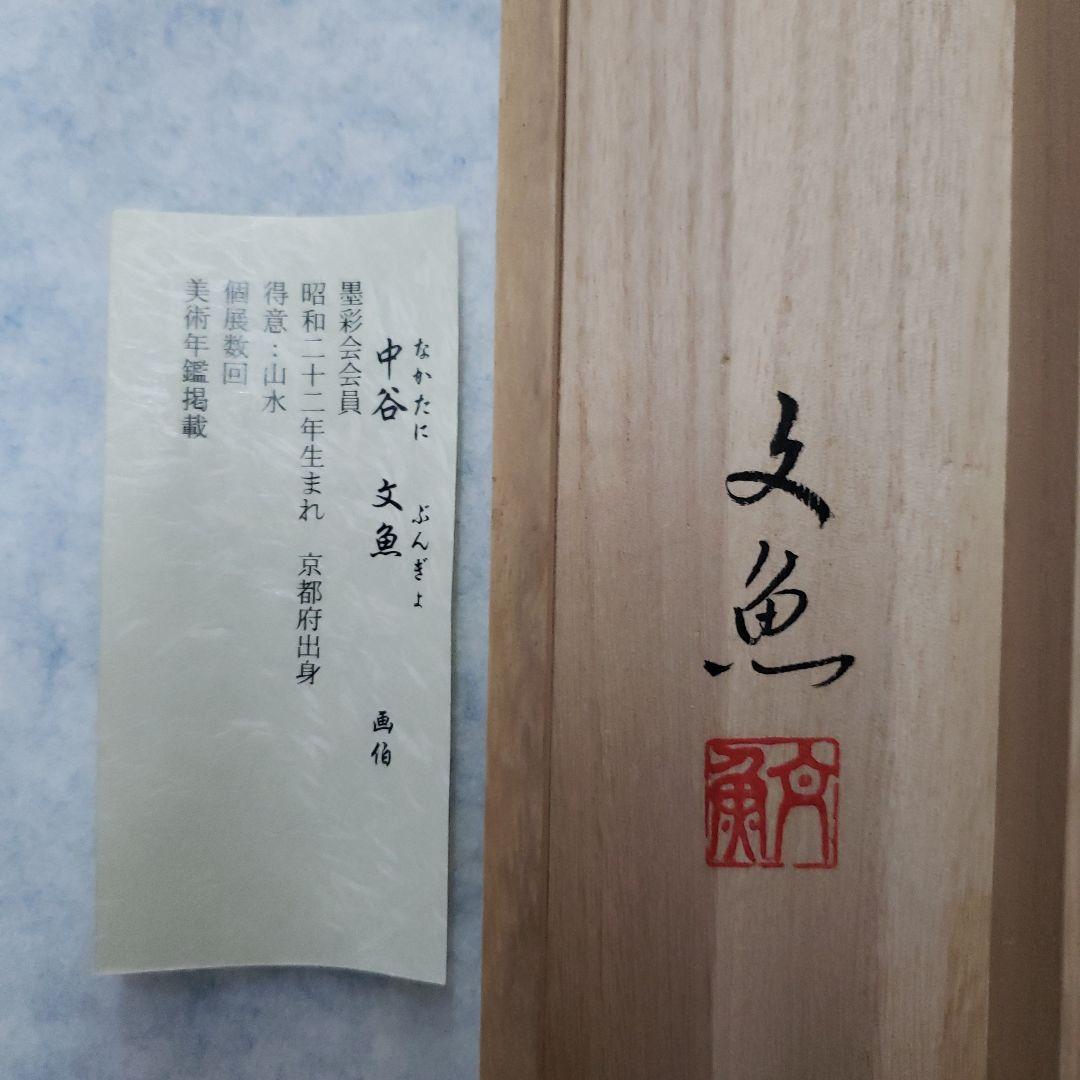 なかたに ぶんぎょ
中谷 文魚 画伯
墨彩会会員
昭和二十二年生まれ 京都府出身
得意：山水
個展数回
美術年鑑掲載
文魚
文魚